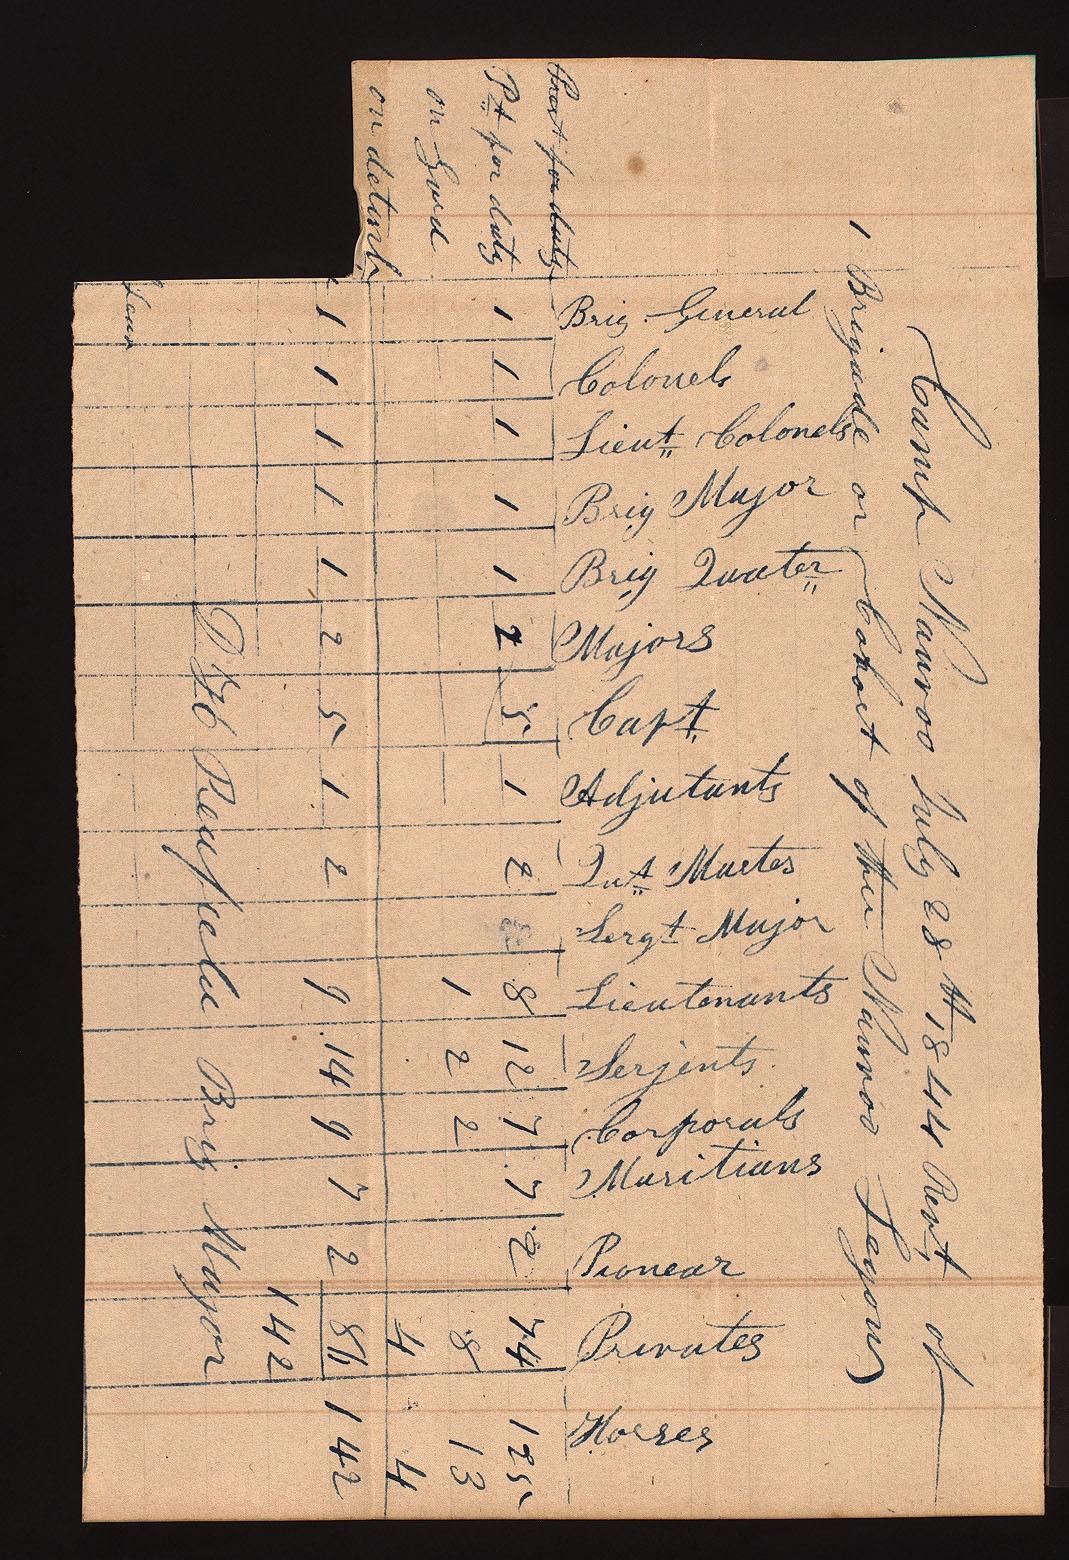 Camp Nauvoo July 28th 1844 Rept of
1 Brigade or Cohort of the Nauvoo Legion
Brig. General
Colonels
Lieut Colonels
Brig Major
Brig Quater
Majors
Capt
Adjutants
Qut Mastes
Sergt Major
Lieutenants
Serjents
Corporals
Musitians
Pionear
Privates
Horses
Prest for duty
Pt for duty 1 1 1 1 1 2 5 1 2 8 12 7 7 2 74 125
on Gurd 1 2 2 8 13
on detmt 4 4
1 1 1 1 1 2 5 1 2 9 14 9 7 2 86 142
142
Brig Major